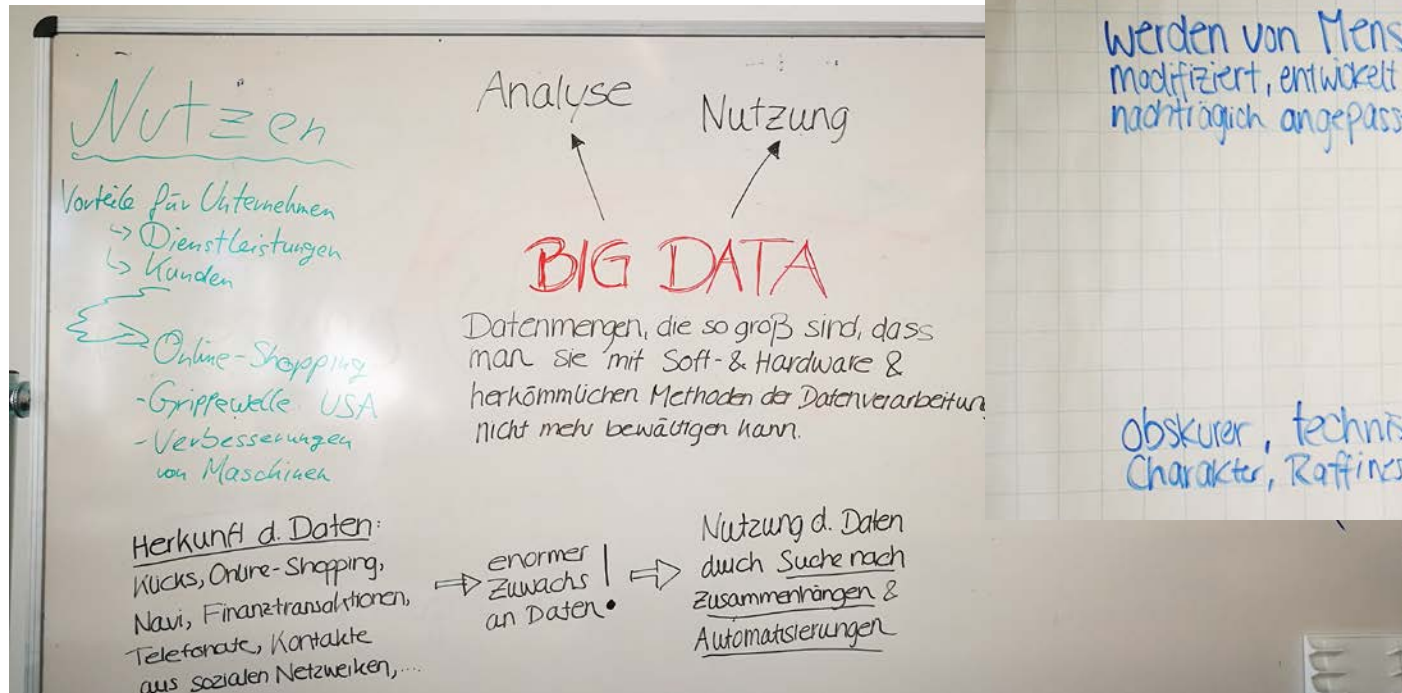 Nutzen
Vorteile für Unternehmen
↳ Dienstleistungen
↳ Kunden
Online-Shopping
-Grippewelle USA
-Verbesserungen
von Maschinen
Analyse
Nutzung
BIG DATA
Datenmengen, die so groß sind, dass
man sie mit Soft- & Hardware &
herkömmlichen Methoden der Datenverarbeitun
nicht mehr bewältigen kann.
Herkunft d. Daten:
Klicks, Online-Shopping,
Navi, Finanztransaktionen,
Telefonate, Kontakte
aus sozialen Netzwerken,....
enormer
Zuwachs
an Daten!
Nutzung d. Daten
durch Suche nach
Zusammenhängen &
Automatisierungen
werden von Mens
modifiziert, entwickelt
nachträglich angepass
obskurer, technis
Charakter, Raffines